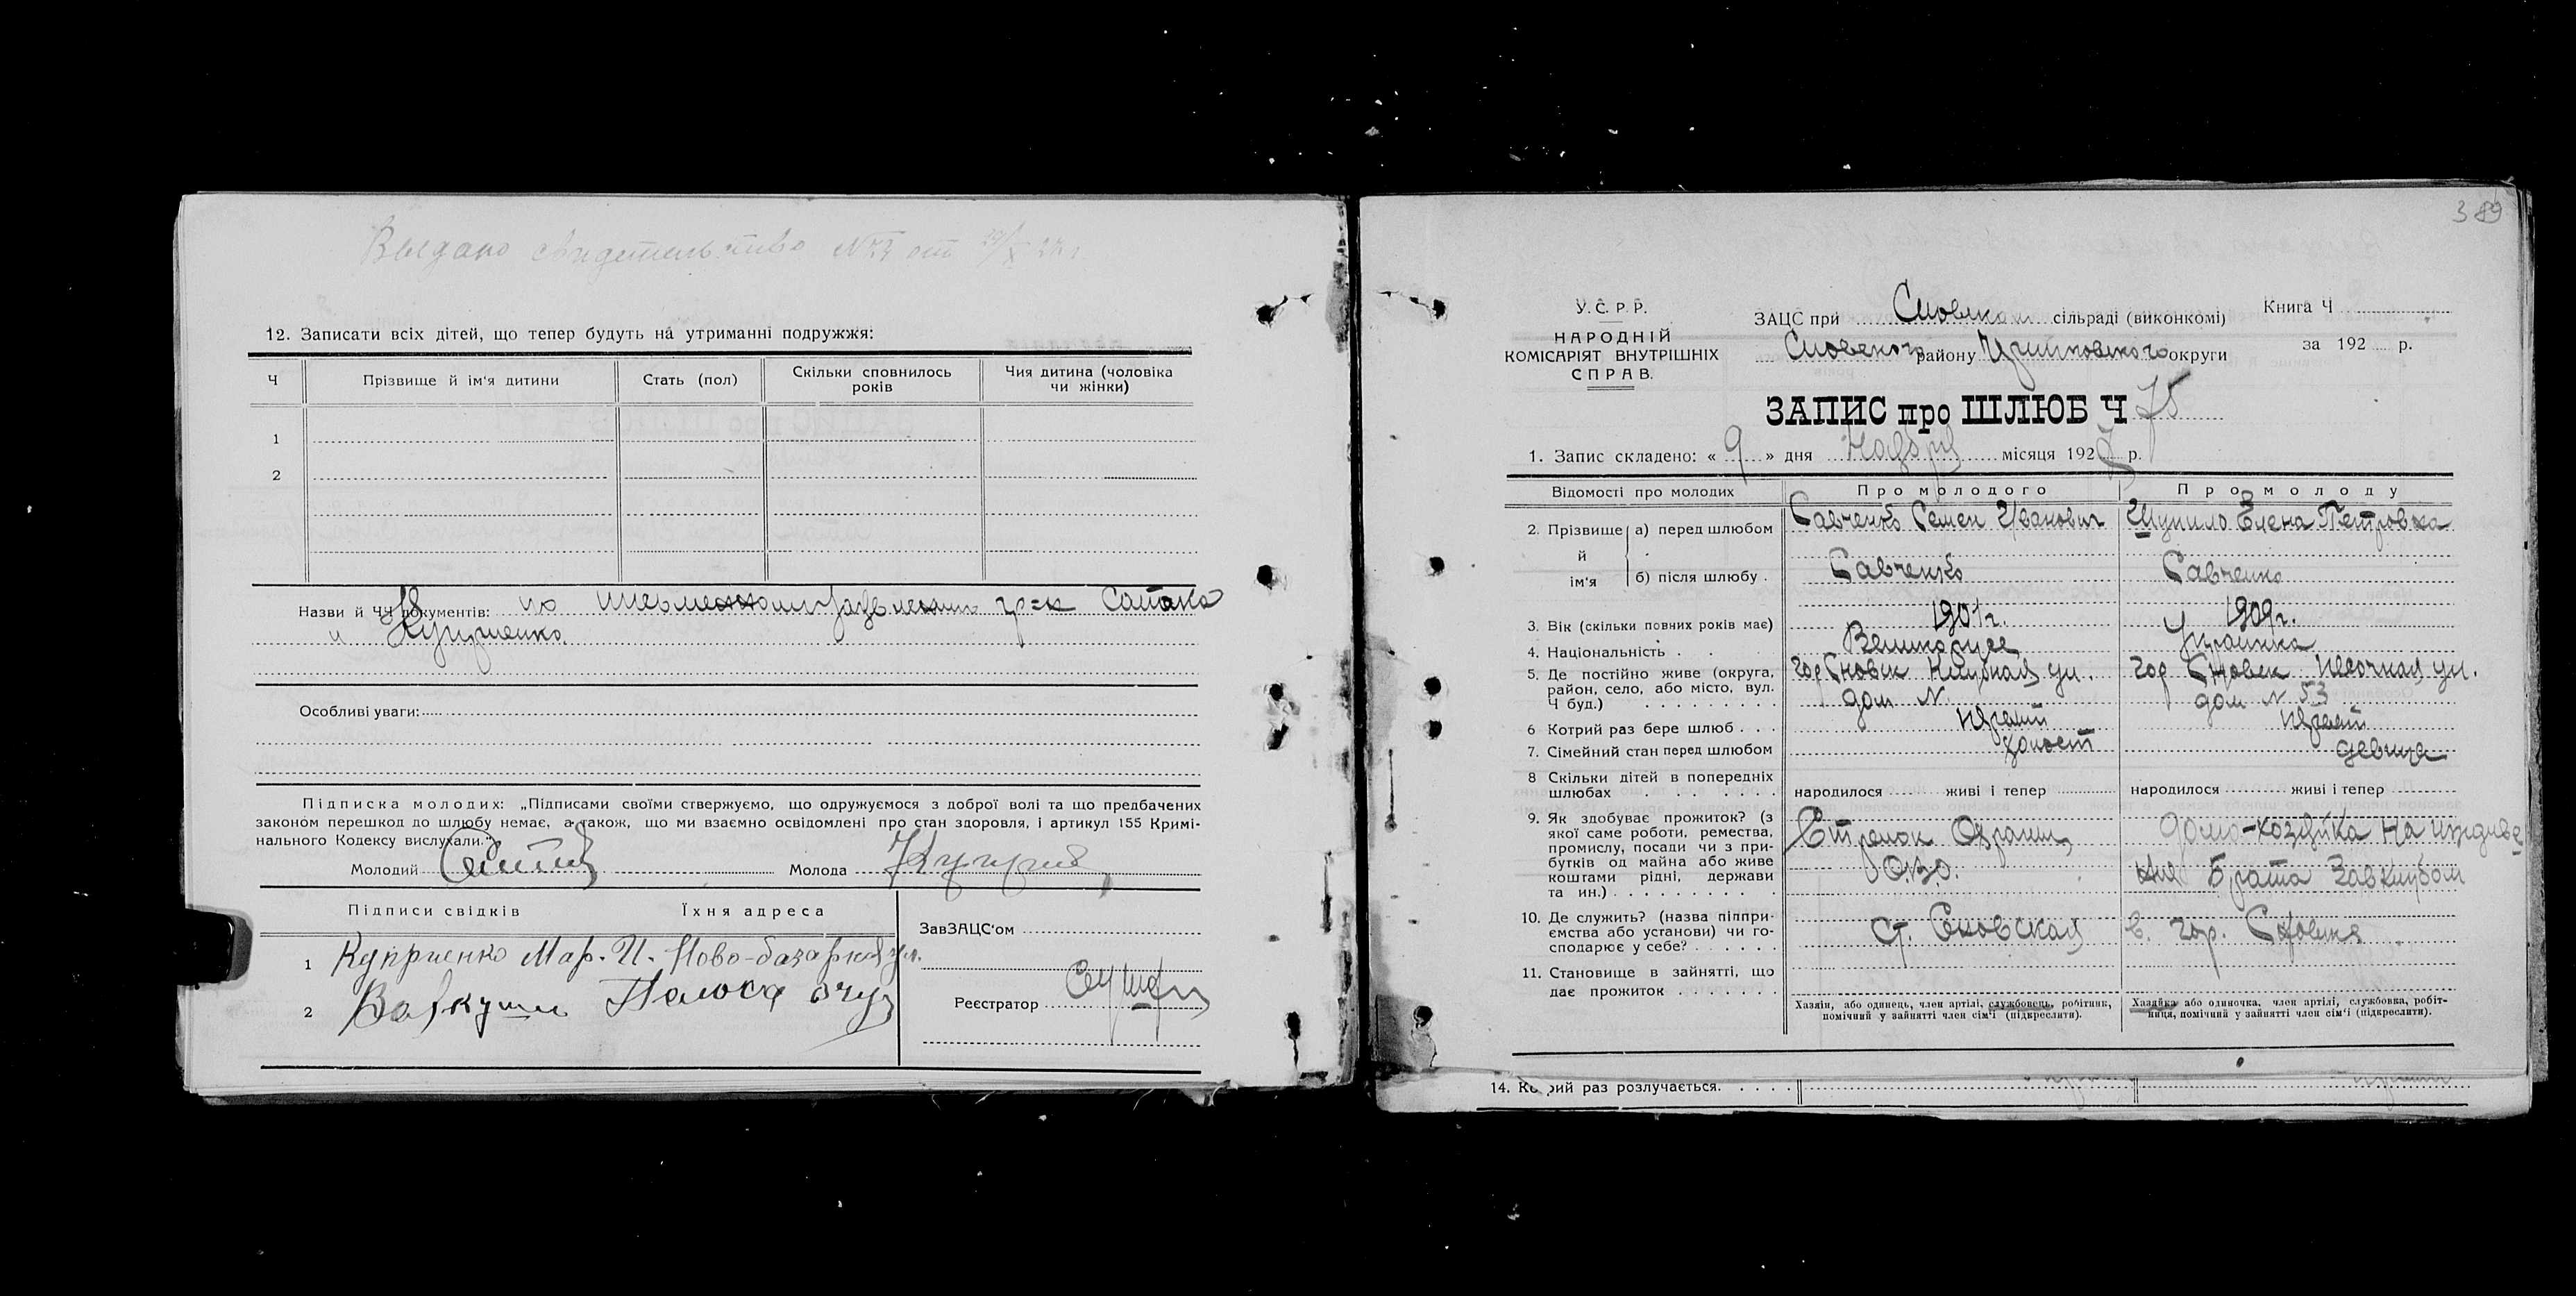 Выдано свидетельство № от
12. Записати всіх дітей, що тепер будуть на утриманні подружжя:
Ч Прізвище й ім'я дитини Стать (пол) Скільки сповнилось років Чия дитина (чоловіка чи жінки)
1
2
Назви й ЧЧ документів: по гр-к
и Куприенко
Особливі уваги:
Підписка молодих: „Підписами своїми стверджуємо, що одружуємося з доброї волі та що предбачених
законом перешкод до шлюбу немає, а також, що ми взаємно освідомлені про стан здоровля, і артикул 155 Кримі-
нального Кодексу вислухали."
Молодий Молода
Підписи свідків Їхня адреса
ЗавЗАЦС'ом
1 Куприенко Мар. И. Ново-базарная ул.
2
Реєстратор
389
У. С. Р. Р.
НАРОДНІЙ
КОМІСАРІЯТ ВНУТРІШНІХ
СПРАВ.
ЗАЦС при сільраді (виконкомі)
Сновского району округи
Книга Ч
за 192 р.
ЗАПИС про ШЛЮБ Ч 75
1. Запис складено: « 9 » дня Ноября місяця 1927 р.
Відомості про молодих Про молодого Про молоду
2. Прізвище й ім'я
а) перед шлюбом Савченко Семен Иванович Шупило Елена Петровна
б) після шлюбу . Савченко Савченко
3. Вік (скільки повних років має) 1901г. 1909г.
4. Національність . . Великорусс Украинка
5. Де постійно живе (округа, район, село, або місто, вул. Ч буд.)
гор Сновск ул. дом N.
гор Сновск Песочная ул. дом N 53
6 Котрий раз бере шлюб . . . первый первый
7. Сімейний стан перед шлюбом холост девица
8 Скільки дітей в попередніх шлюбах
народилося живі і тепер народилося живі і тепер
9. Як здобуває прожиток? (з якої саме роботи, ремества, промислу, посади чи з прибутків од майна або живе коштами рідні, держави та ин.)
Стрелок Охраны
домо-хозяйка на иждиве
ния Брата Завклубом
10. Де служить? (назва піппри-ємства або установи) чи господарює у себе?
ст. Сновская
в. гор. Сновске
11. Становище в зайнятті, що дає прожиток
Хазяін, або одинець, член артілі, службовець, робітник, помічний у зайнятті член сім'ї (підкреслити).
Хазяйка або одиночка, член артілі, службовка, робіт-ниця, помічний у зайнятті член сім'ї (підкреслити).
14. раз розлучається.